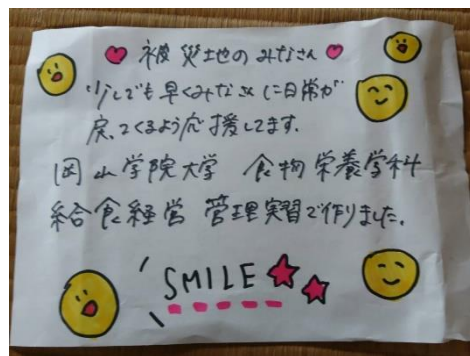 被災地のみなさん
少しでも早くみなさんに日常が
戻ってくるよう応援してます。
岡山学院大学 食物栄養学科
給食経営管理実習で作りました。
SMILE